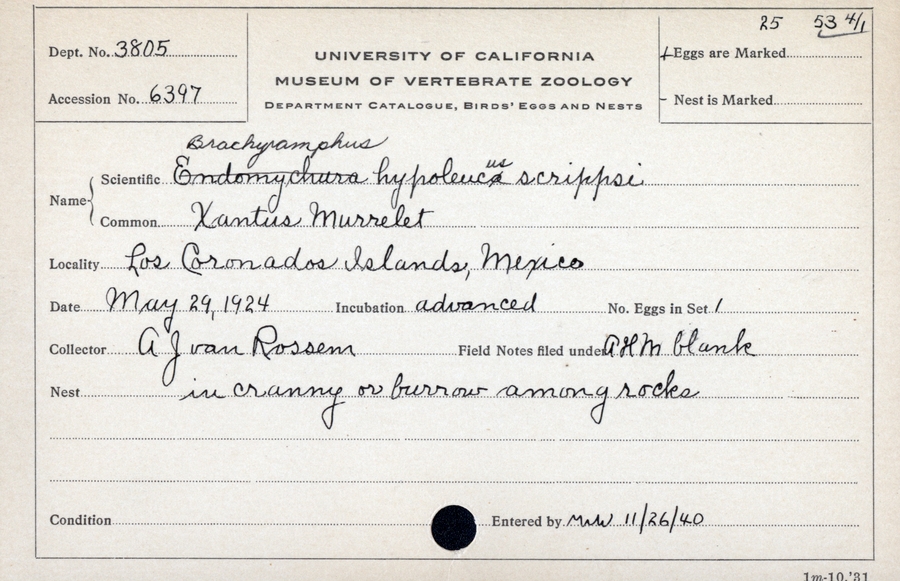 25 53 4/1
Dept. No. 3805
UNIVERSITY OF CALIFORNIA
+ Eggs are Marked
MUSEUM OF VERTEBRATE ZOOLOGY
Accession No. 6397
DEPARTMENT CATALOGUE, BIRDS' EGGS AND NESTS
- Nest is Marked
Brachyramphus
Name { Scientific Endomychura hypoleucus scrippsi
Common Xantus Murrelet
Locality Los Coronados Islands, Mexico
Date May 29, 1924 Incubation advanced No. Eggs in Set 1
Collector A J van Rossem Field Notes filed under AHM blank
Nest in cranny or burrow among rocks
Condition Entered by 11/26/40
1m-10,'31